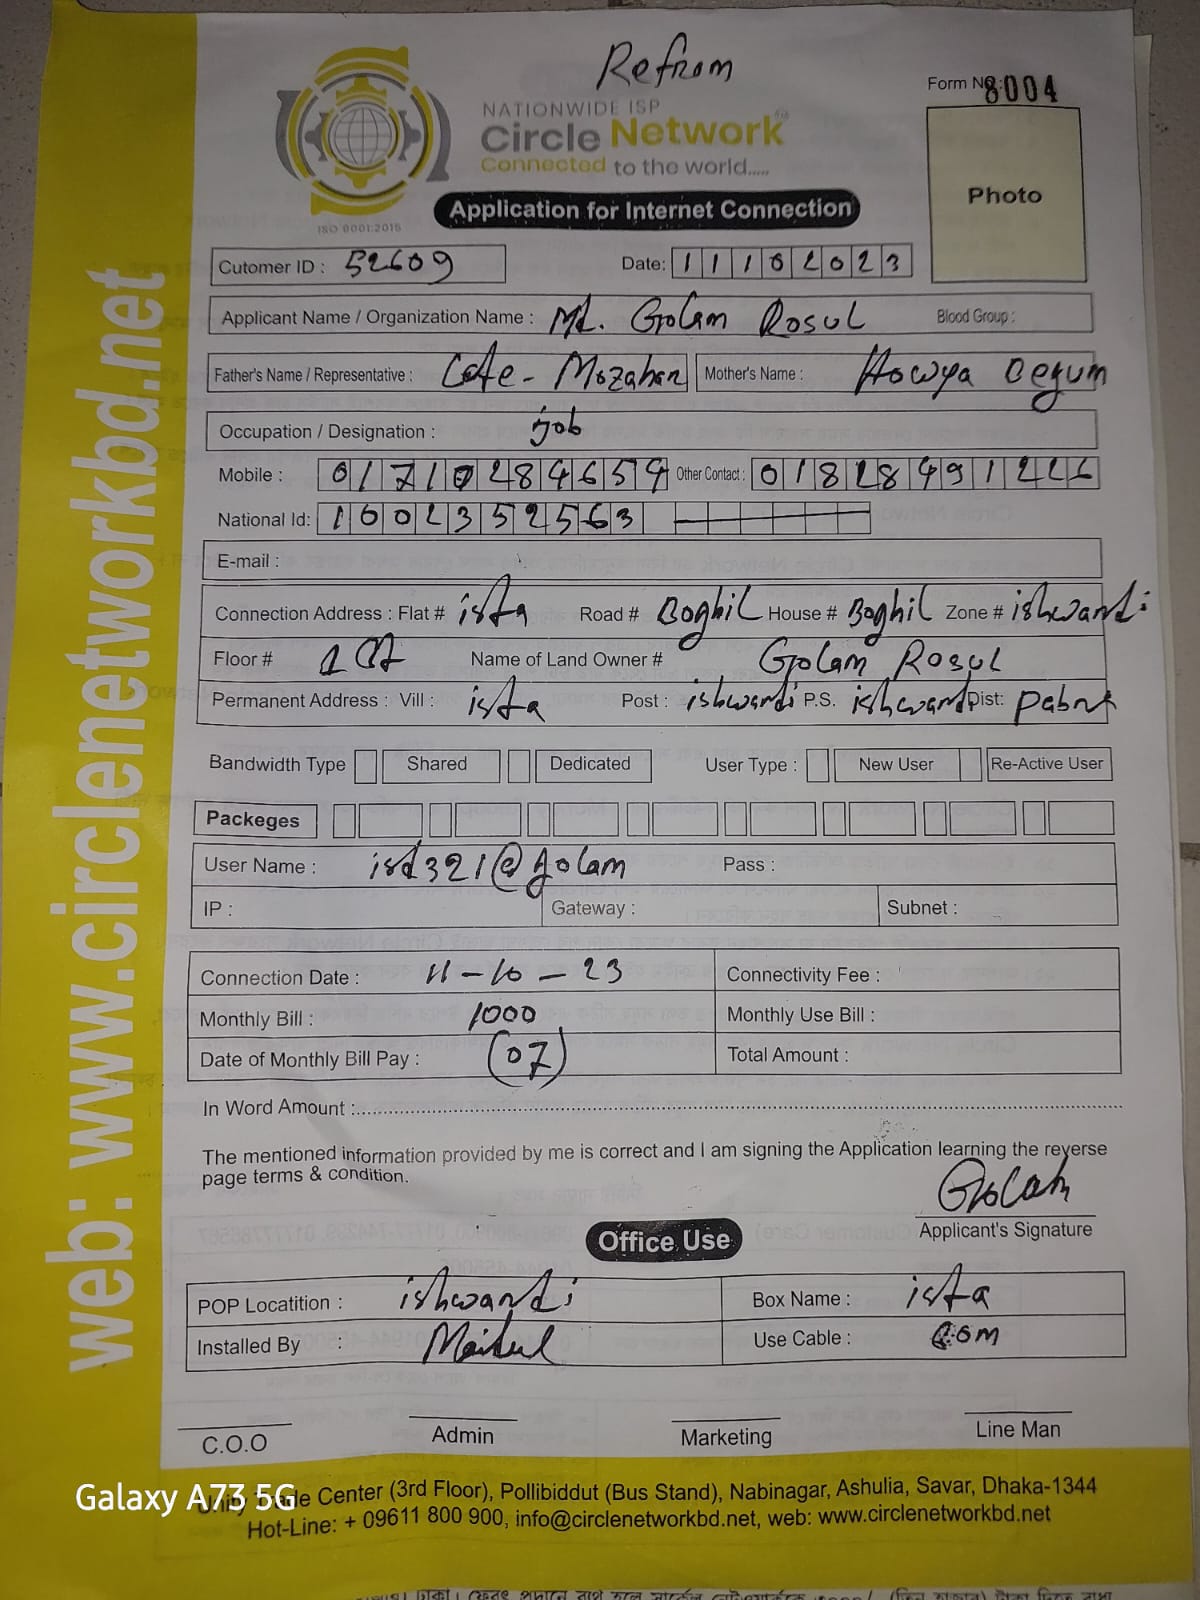 Refrom
Form No: 8004
NATIONWIDE ISP
Circle Network
Connected to the world.....
ISO 9001:2015
Application for Internet Connection
Photo
Cutomer ID : 52609
Date: 11102023
Applicant Name / Organization Name : Md. Golam Rosul Blood Group :
Father's Name / Representative : Late - Mozahar Mother's Name : Howya Begum
Occupation / Designation : job
Mobile : 01710284659 Other Contact : 01828491226
National Id: 1002352563
E-mail :
Connection Address : Flat # ista Road # Boghil House # Boghil Zone # ishwardi
Floor # 1st Name of Land Owner # Golam Rosul
Permanent Address : Vill : ista Post : ishwardi P.S. ishwardi Dist: Pabna
Bandwidth Type Shared Dedicated User Type : New User Re-Active User
Packeges
User Name : isd321@golam Pass :
IP : Gateway : Subnet :
Connection Date : 11-10-23 Connectivity Fee :
Monthly Bill : 1000 Monthly Use Bill :
Date of Monthly Bill Pay : (07) Total Amount :
In Word Amount :
The mentioned information provided by me is correct and I am signing the Application learning the reverse
page terms & condition.
Golam
Applicant's Signature
Office Use
POP Locatition : ishwardi Box Name : ista
Installed By : Use Cable :
C.O.O Admin Marketing Line Man
Unity Trade Center (3rd Floor), Pollibiddut (Bus Stand), Nabinagar, Ashulia, Savar, Dhaka-1344
Hot-Line: + 09611 800 900, info@circlenetworkbd.net, web: www.circlenetworkbd.net
web: www.circlenetworkbd.net
Galaxy A73 5G